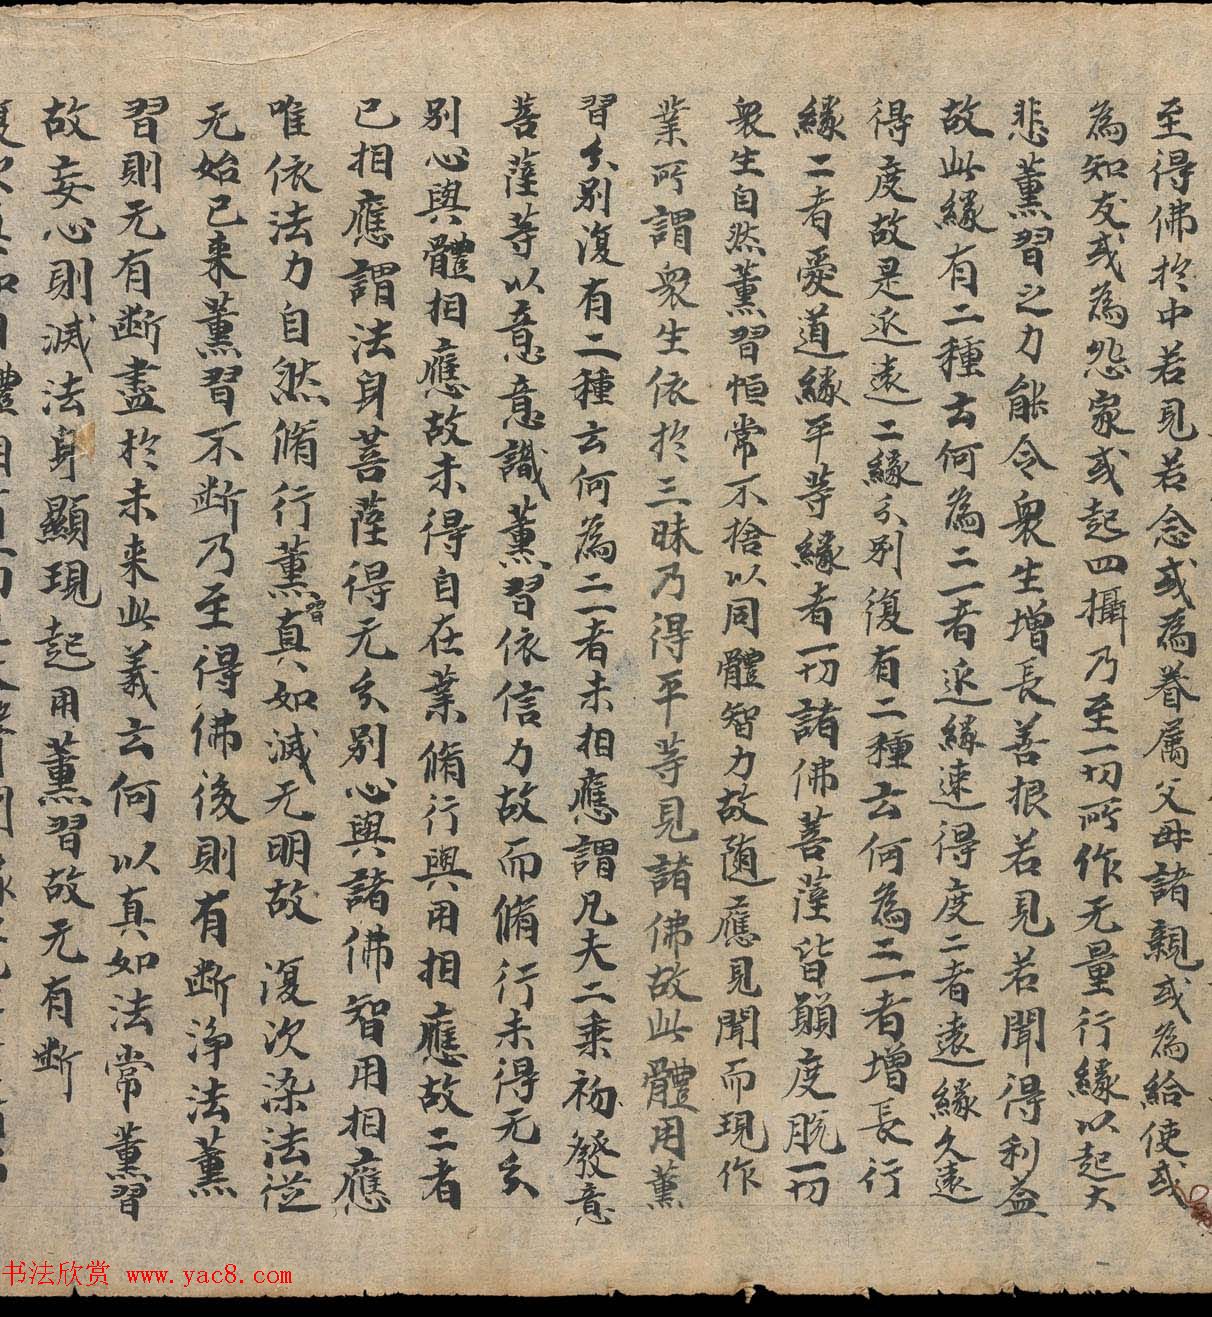 至得佛於中若見若念或為眷属父母諸親或為給使或
為知友或為怨家或起四攝乃至一切所作无量行緣以起大
悲薰習之力能令衆生增長善根若見若聞得利益
故此緣有二種云何為二一者近緣速得度二者遠緣久遠
得度故是近遠二緣分別復有二種云何為二一者增長行
緣二者受道緣平等緣者一切諸佛菩薩皆願度脫一切
衆生自然薰習恒常不捨以同體智力故随應見聞而現作
業所謂衆生依於三昧乃得平等見諸佛故此體用薰
習分別復有二種云何為二一者未相應謂凡夫二乘初發意
菩薩等以意意識薰習依信力故而脩行未得无分
別心與體相應故未得自在業脩行與用相應故二者
已相應謂法身菩薩得无分別心與諸佛智用相應
唯依法力自然脩行薰習真如滅无明故 復次染法從
无始已来薰習不断乃至得佛後則有断淨法薰
習則无有断盡於未来此義云何以真如法常薰習
故妄心則滅法身顯現起用薰習故无有断
書法欣赏 www.yac8.com